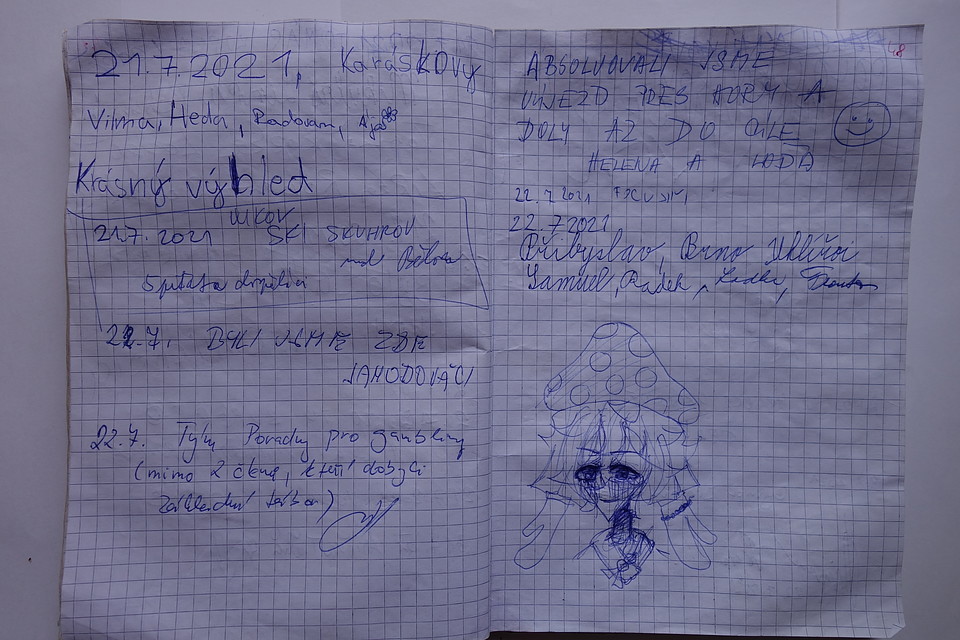 21.7.2021, Karáskovy
Vilma, Heda, Radovan, Ája
Krásný výhled
VLKOV
21.7. 2021 SKI SKUHROV
nad Bělou
5 ptáta
22.7. BYLI JSME ZDE
JAHODOVÁCI
22.7. Týky Poradny pro gambling
(mimo 2 členů, kteří dobyli
základní tábor)
48
ABSOLVOVALI JSME
VÝJEZD PŘES HORY A
DOLY AŽ DO CÍLE
HELENA A LÁĎA
22.7.2021
22.7.2021
Přibyslav, Brno
Samuel, Radek, Radka,